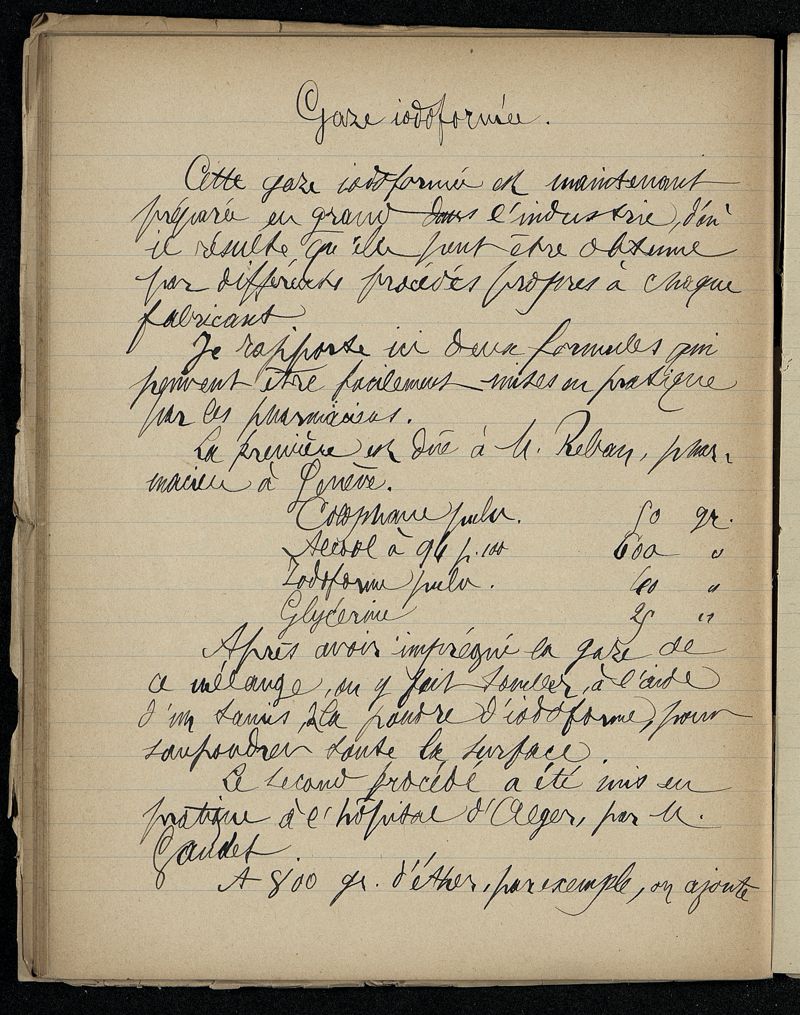 Gaze iodoformée.
Cette gaze iodoformée est maintenant
préparée en grand dans l'industrie, d'où
il résulte qu'elle peut être obtenue
par différents procédés propres à chaque
fabricant
Je rapporte ici deux formules qui
peuvent être facilement mises en pratique
par les pharmaciens.
La première est dûe à M. Reban, phar-
macien à Genève.
Colophane pulv. 50 gr.
Alcool à 94 p. 100 600 "
Iodoforme pulv. 60 "
Glycérine 25 "
Après avoir imprégné la gaze de
ce mélange, on y fait tomber, à l'aide
d'un tamis, de la poudre d'iodoforme, pour
saupoudrer toute la surface.
Le second procédé a été mis en
pratique à l'hôpital d'Alger, par M.
Gaudet
A 800 gr. d'éther, par exemple, on ajoute